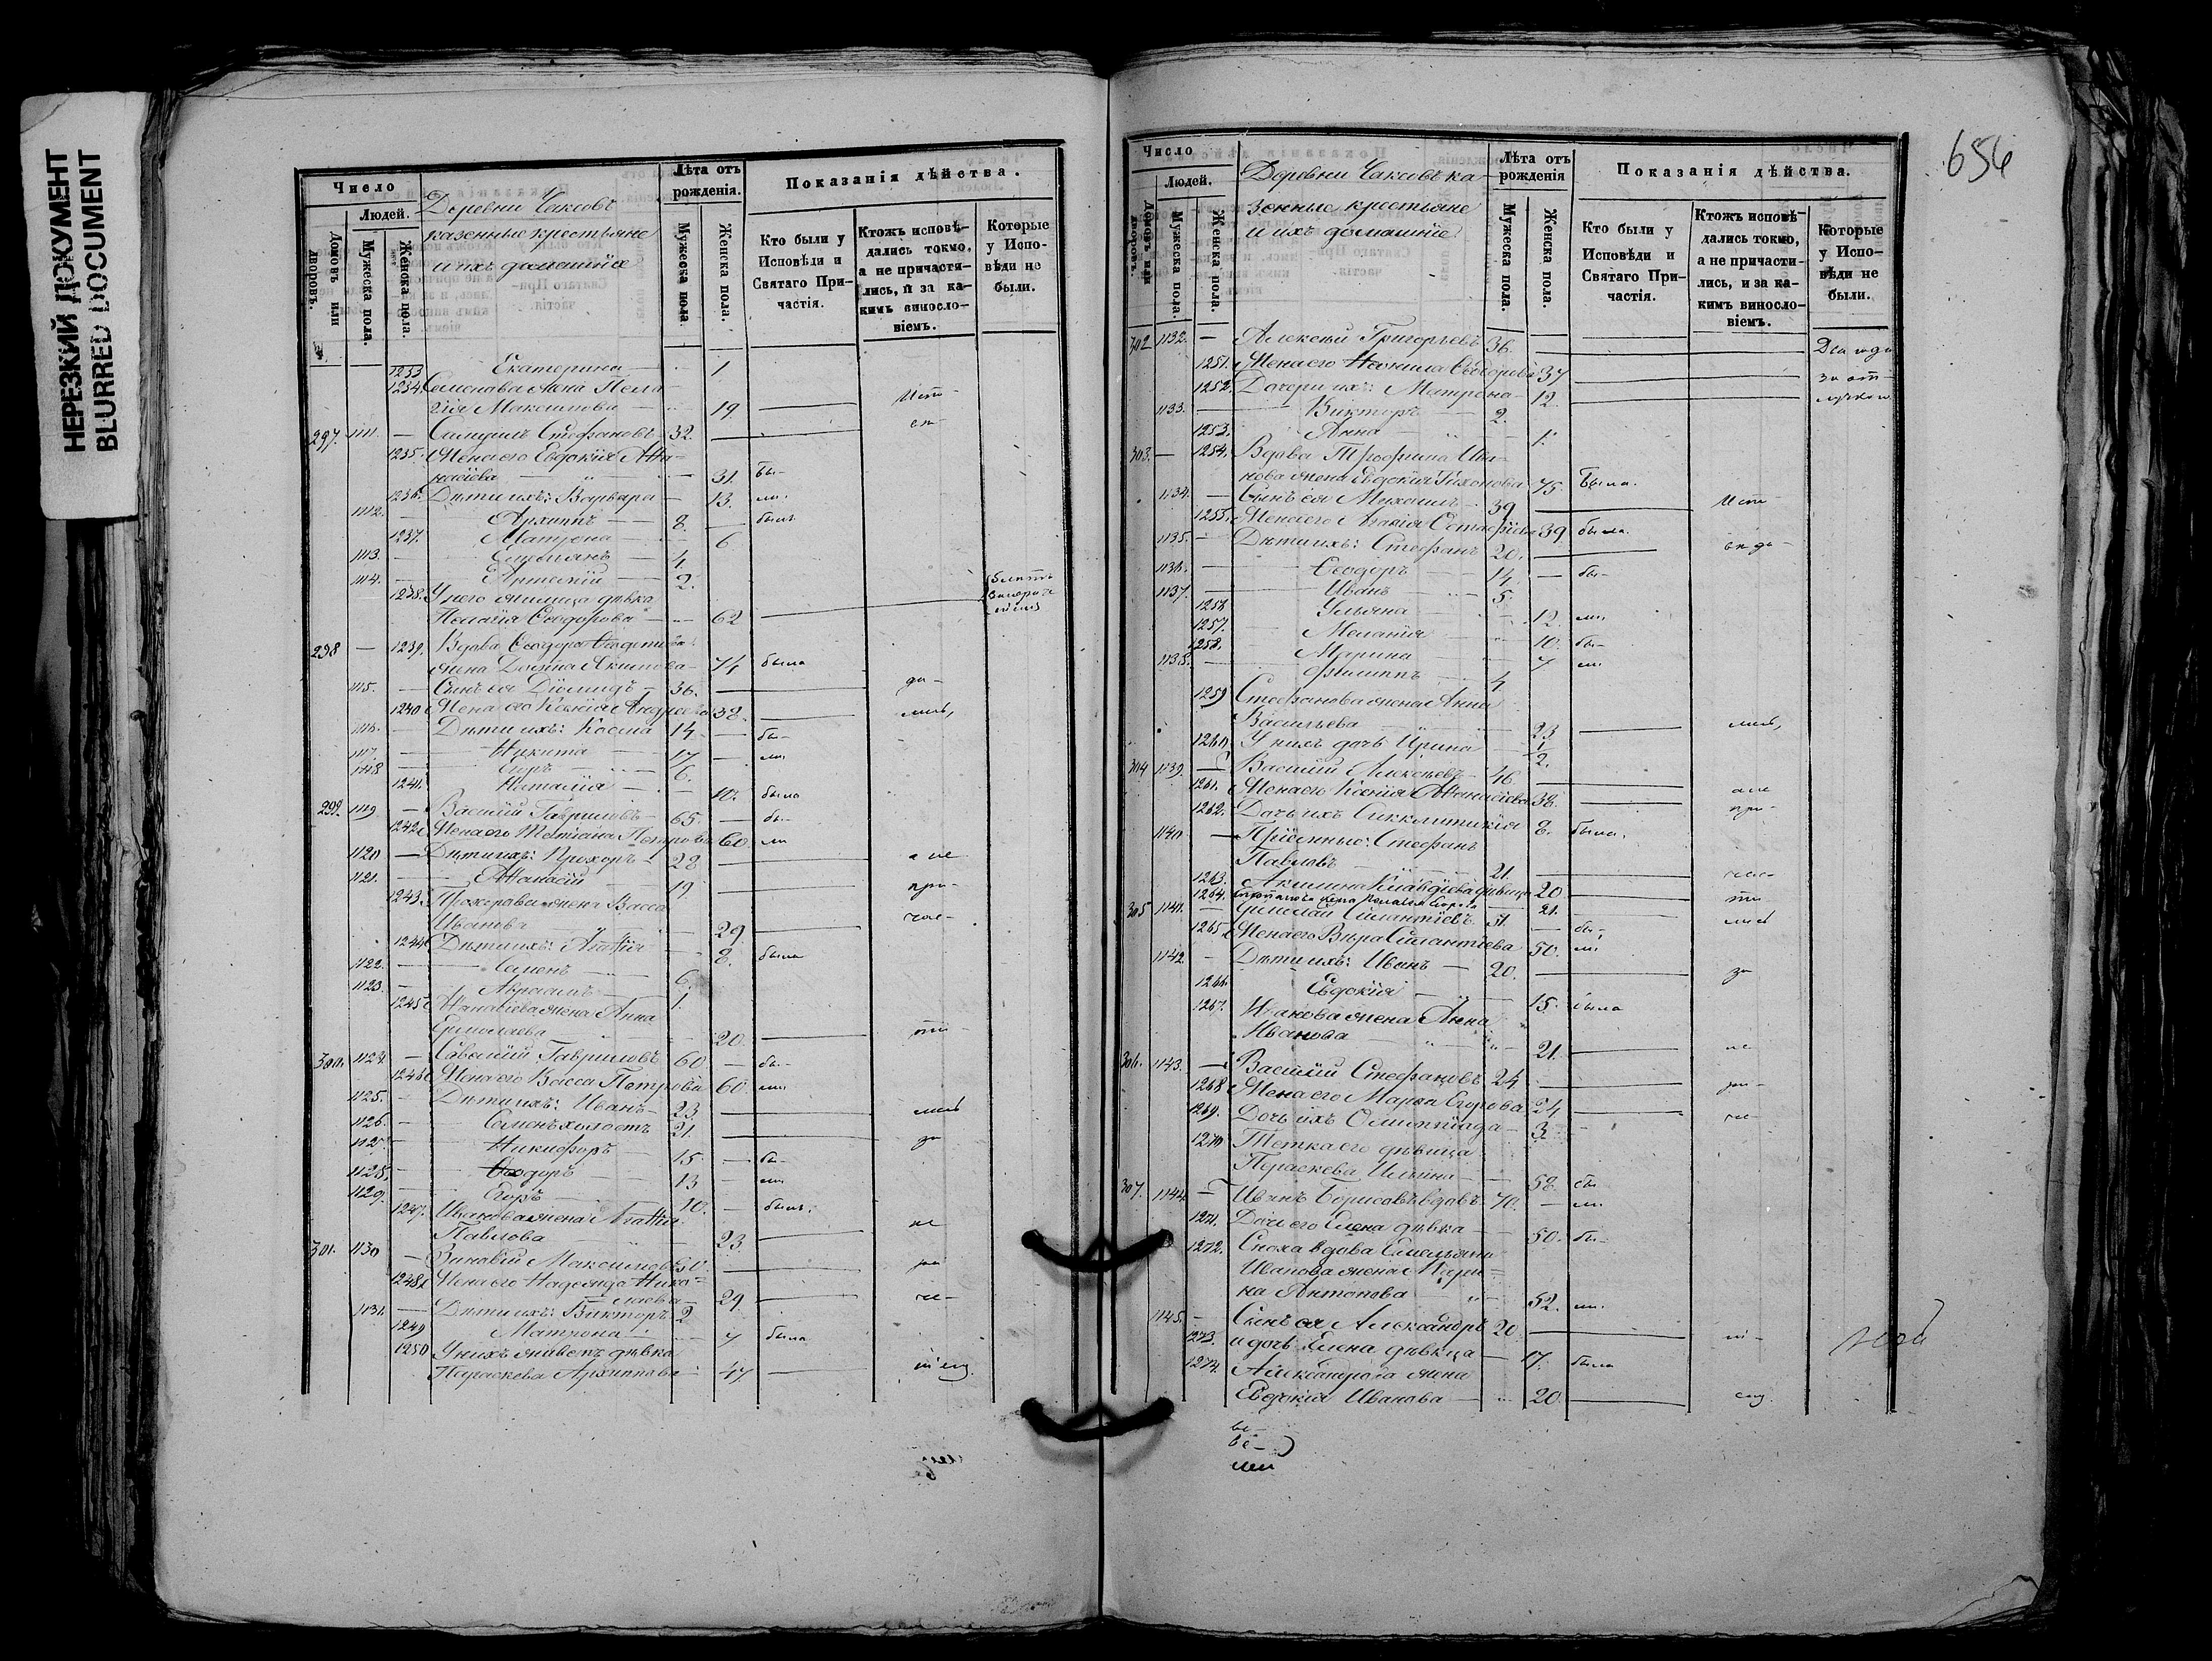 НЕРЕЗКИЙ ДОКУМЕНТ
BLURRED DOCUMENT
Число
Людей.
Домовъ или дворовъ.
Мужеска пола.
Женска пола.
Деревни Чаксовъ
казенные крестьяне
и ихъ домашніе
Лѣта отъ рожденія.
Мужеска пола.
Женска пола.
Показанія дѣйства.
Кто были у Исповѣди и Святаго Причастія.
Ктожъ исповѣдались токмо, а не причастились, и за какимъ винословіемъ.
Которые у Исповѣди не были.
1233 Екатерина 1
1234 Семенова жена Пела-
гія Максимова 19
297. 1111. Самуилъ Стефановъ 32.
1235. Жена его Евдокія Аѳа-
насіева 31. бы-
1236. Дѣти ихъ: Варвара 13. ли.
1112. Архиппъ 8. былъ
1237. Матрона 6
1113. Емельянъ 4
1114. 2.
1238. У него жилица дѣвка
Пелагія Ѳеодорова 62
298 1239. Вдова Ѳеодора
жена Дарья Акимова 74 была
1115. Сынъ ея Діомидъ 36. да-
1240 Жена его Ксенія Андреева 38. лись,
1116. Дѣти ихъ: Косма 14 бы-
1117. Никита 17 ли
1118 Егоръ 6.
1241. Наталія 10. была
299. 1119 Василій Гавриловъ 65. бы-
1242 Жена его Татіана Петрова 60 ли
1120 Дѣти ихъ: Прохоръ 28 а не
1121. Аѳанасій 19 при-
1243. Прохорова жена Васса
Иванова 29 час-
1244 Дѣти ихъ: Агаѳія 8. была
1122. Семенъ 6.
1123. Авраамъ 1.
1245 Аѳанасіева жена Анна
Ермолаева 20. ти
300. 1124. Савватій Гавриловъ 60 бы-
1246 Жена его Васса Петрова 60. ли
1125. Дѣти ихъ: Иванъ 23 лись
1126. Семенъ холостъ 21. за
1127. Никифоръ 15 бы-
1128. Ѳеодоръ 13 ли
1129. Егоръ 10. былъ.
1247. Иванова жена Агаѳія
Павлова 23 не
301. 1130 Зиновій Максимовъ 30.
1248 Жена его Надежда Нико-
лаева 29
1131. Дѣти ихъ: Викторъ 2
1249 Матрона 7 была
1250 У нихъ живетъ дѣвка
Параскева Архиппова 47
656
Число
Людей.
Домовъ или дворовъ.
Мужеска пола.
Женска пола.
Деревни Чаксовъ ка-
зенные крестьяне
и ихъ домашніе
Лѣта отъ рожденія
Мужеска пола.
Женска пола.
Показанія дѣйства.
Кто были у Исповѣди и Святаго Причастія.
Ктожъ исповѣдались токмо, а не причастились, и за какимъ винословіемъ.
Которые у Исповѣди не были.
302 1132. Алексѣй Григорьевъ 36. Два года
1251. Жена его Неонила Ѳеодорова 37 за от-
1252. Дочери ихъ: Матрона 12. лучкою
1133. Викторъ 2.
1253. Анна 1.
303. 1254. Вдова Трофима Ива-
нова жена Евдокія Тихонова 75. была.
1134. Сынъ ея Михаилъ 39 Испо-
1255. Жена его Агаѳія Остафіева 39 была.
1135. Дѣти ихъ: Стефанъ 20. вѣда-
1136. Ѳеодоръ 14. бы-
1137. Иванъ 5.
1256 Ульяна 12. ли
1257. Меланія 10. бы-
1258. Марина 7 ли
1138. Филиппъ 4
1259 Стефанова жена Анна
Васильева 23 лись,
1260 У нихъ дочь Ирина
304 1139. Василій Алексѣевъ 46
1261. Жена его Ксенія Аѳанасіева 38. а не
1262. Дочь ихъ Синклитикія 8. была. при-
1140 Пріемные: Стефанъ
Павловъ 21. час-
1263. Акилина Клавдіева дѣвица 20 ти
1264. Стефанова жена Пелагія 21.
305 1141. Ермолай Силантіевъ 51. бы- лись
1265. Жена его Вѣра Силантіева 50. ли
1142. Дѣти ихъ: Иванъ 20. за
1266. Евдокія 15. была
1267. Иванова жена Анна
Иванова 21. не
306. 1143. Василій Стефановъ 24
1268 Жена его Марѳа Егорова 24
1269. Дочь ихъ Олимпіада 3
1270 Тетка его дѣвица
Параскева Ильина 58. бы
307. 1144. Иванъ Борисовъ вдовъ 70. ли.
1271. Дочь его Елена дѣвка 50. бы-
1272. Сноха вдова Емельяна
Иванова жена Мари-
на Антонова 52. ли.
1145. Сынъ ея Александръ 20
1273. и дочь Елена дѣвица 17. была
1274. Александрова жена
Евдокія Иванова 20.